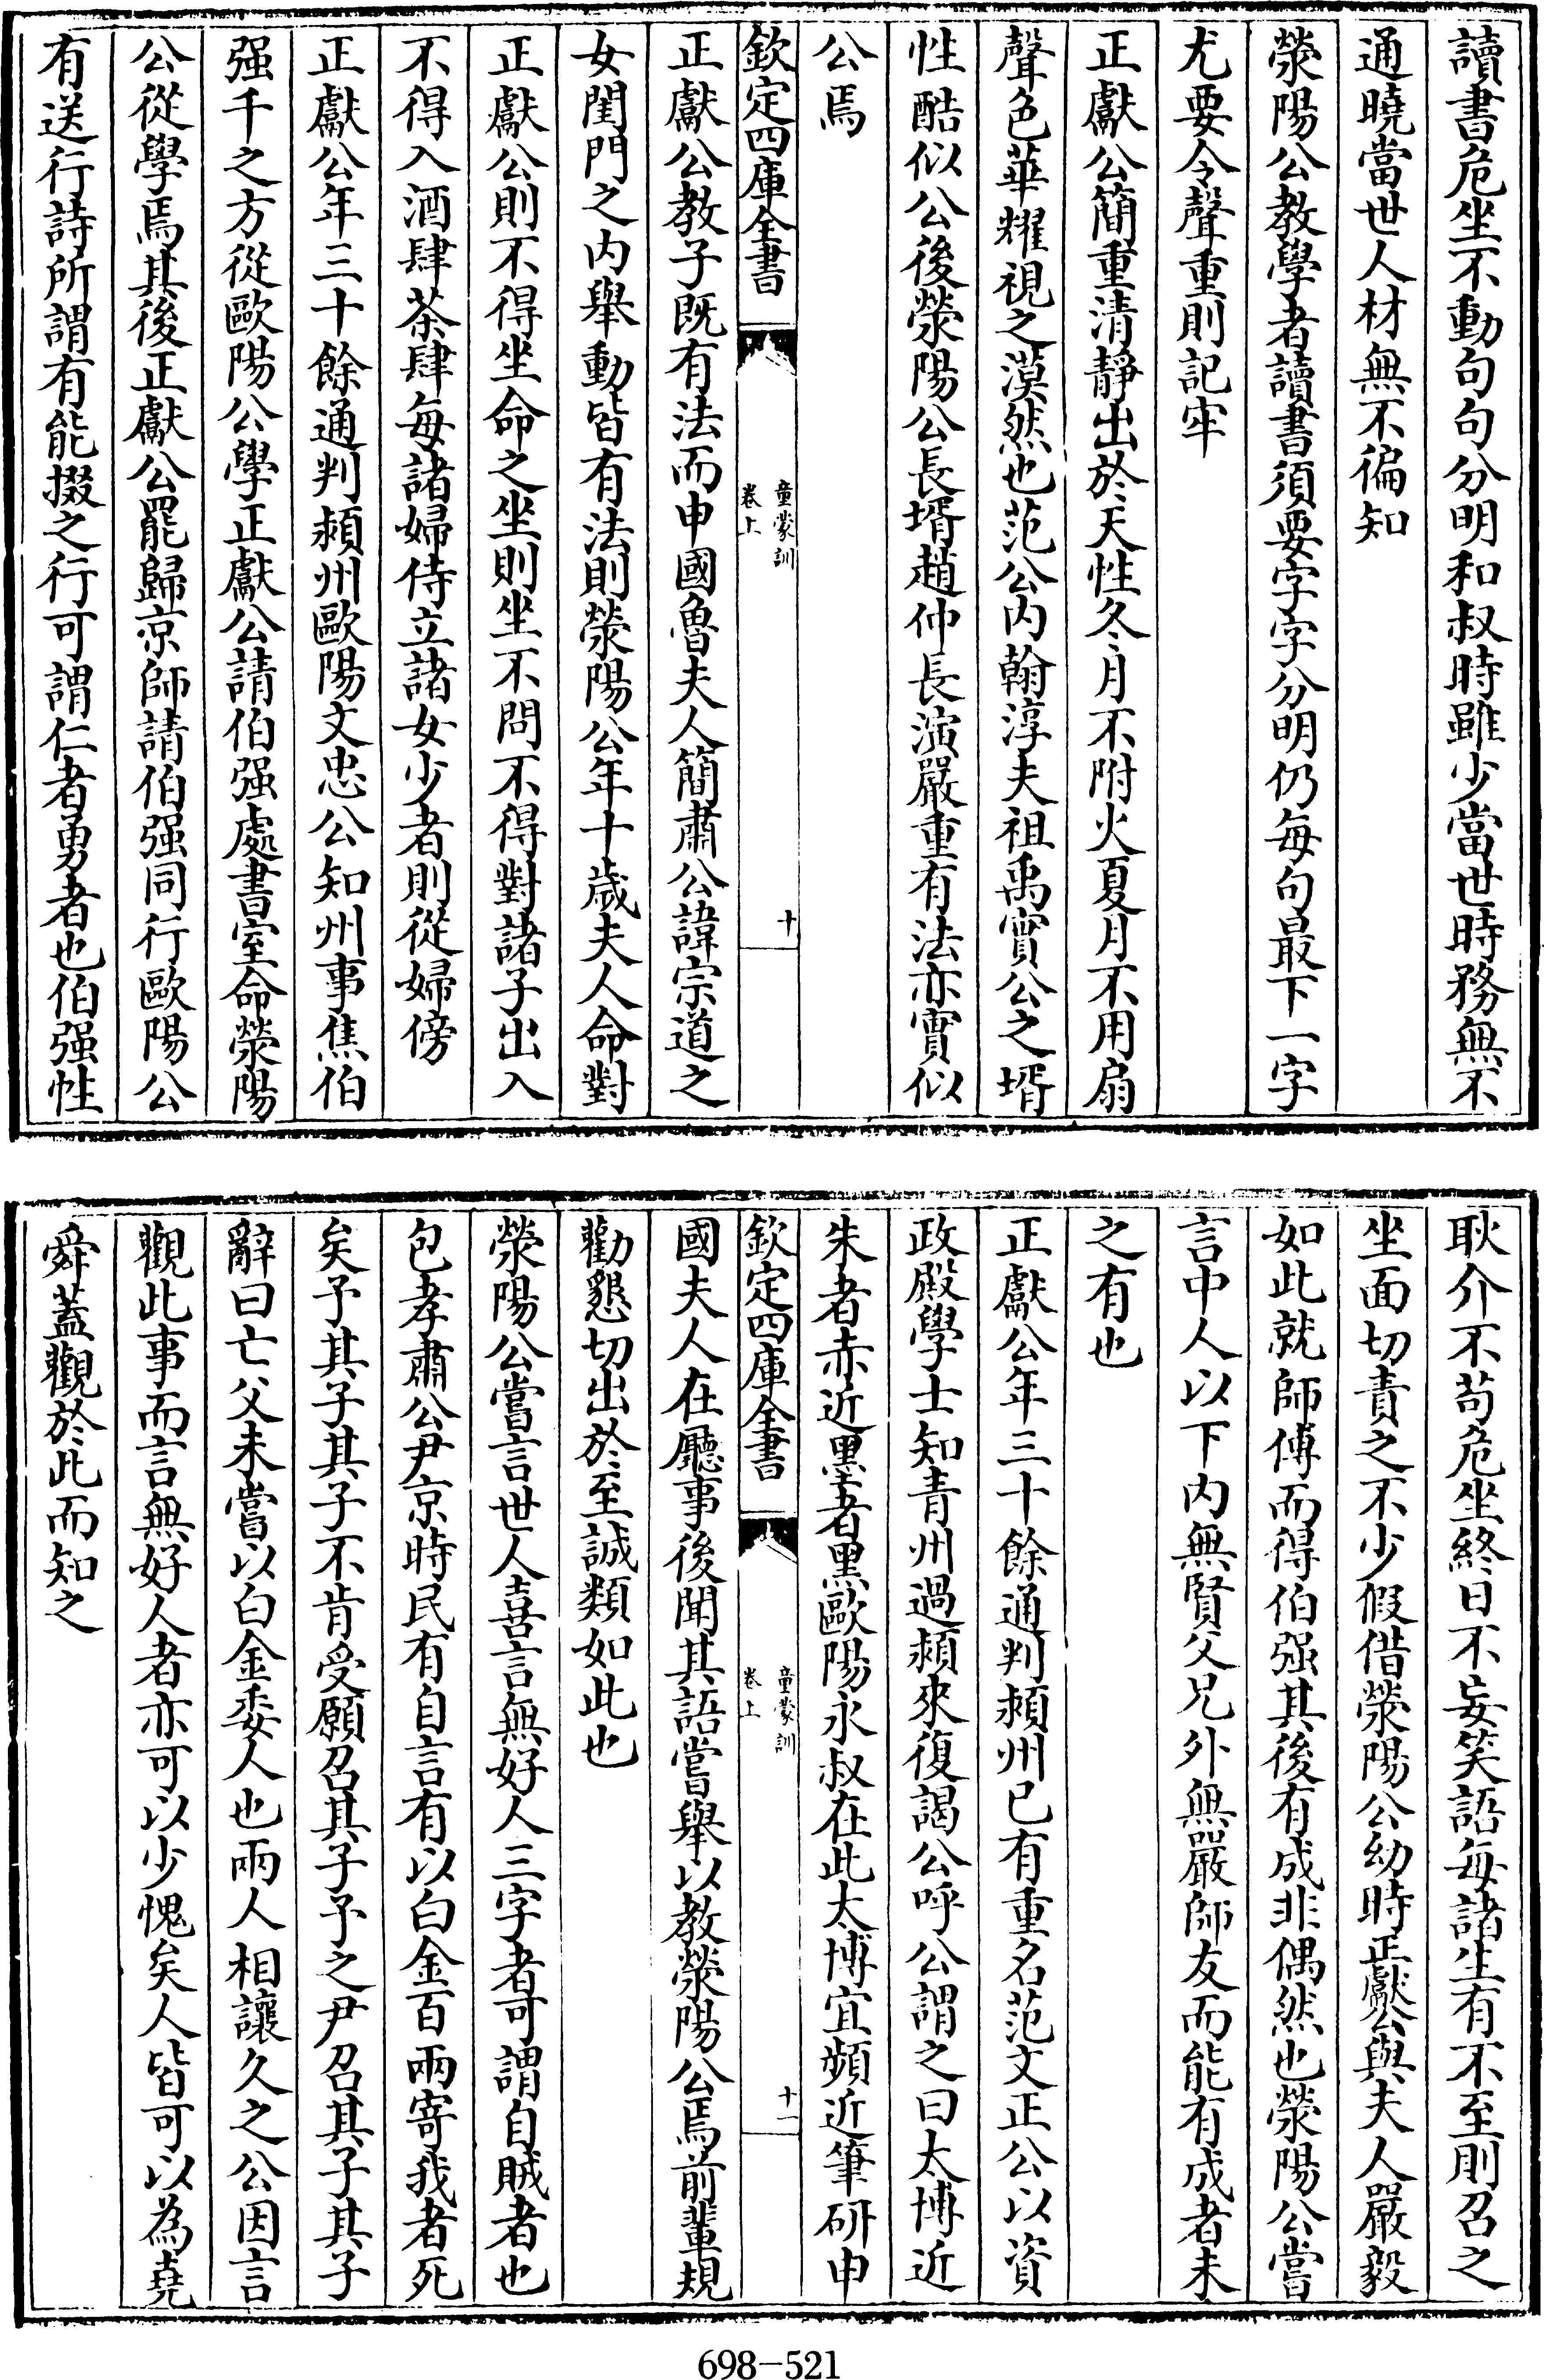 讀書危坐不動句句分明和叔時雖少當世時務無不
通曉當世人材無不徧知
滎陽公教學者讀書須要字字分明仍每句最下一字
尤要令聲重則記牢
正獻公簡重清靜出於天性冬月不附火夏月不用扇
聲色華耀視之漠然也范公内翰淳夫祖禹實公之壻
性酷似公後滎陽公長壻趙仲長演嚴重有法亦實似
公焉
欽定四庫全書
童蒙訓
卷上
十
正獻公教子既有法而申國魯夫人簡肅公諱宗道之
女閨門之内舉動皆有法則滎陽公年十歲夫人命對
正獻公則不得坐命之坐則坐不問不得對諸子出入
不得入酒肆茶肆每諸婦侍立諸女少者則從婦傍
正獻公年三十餘通判潁州歐陽文忠公知州事焦伯
强千之方從歐陽公學正獻公請伯强處書室命滎陽
公從學焉其後正獻公罷歸京師請伯强同行歐陽公
有送行詩所謂有能掇之行可謂仁者勇者也伯强性
耿介不苟危坐終日不妄笑語每諸生有不至則召之
坐面切責之不少假借滎陽公幼時正獻公與夫人嚴毅
如此就師傅而得伯强其後有成非偶然也滎陽公嘗
言中人以下内無賢父兄外無嚴師友而能有成者未
之有也
正獻公年三十餘通判潁州已有重名范文正公以資
政殿學士知青州過潁來復謁公呼公謂之曰太博近
朱者赤近墨者黑歐陽永叔在此太博宜頻近筆研申
欽定四庫全書
童蒙訓
卷上
十一
國夫人在廳事後聞其語嘗舉以教滎陽公焉前輩規
勸懇切出於至誠類如此也
滎陽公嘗言世人喜言無好人三字者可謂自賊者也
包孝肅公尹京時民有自言有以白金百兩寄我者死
矣予其子其子不肯受願召其子予之尹召其子其子
辭曰亡父未嘗以白金委人也兩人相讓久之公因言
觀此事而言無好人者亦可以少愧矣人皆可以為堯
舜蓋觀於此而知之
698-521